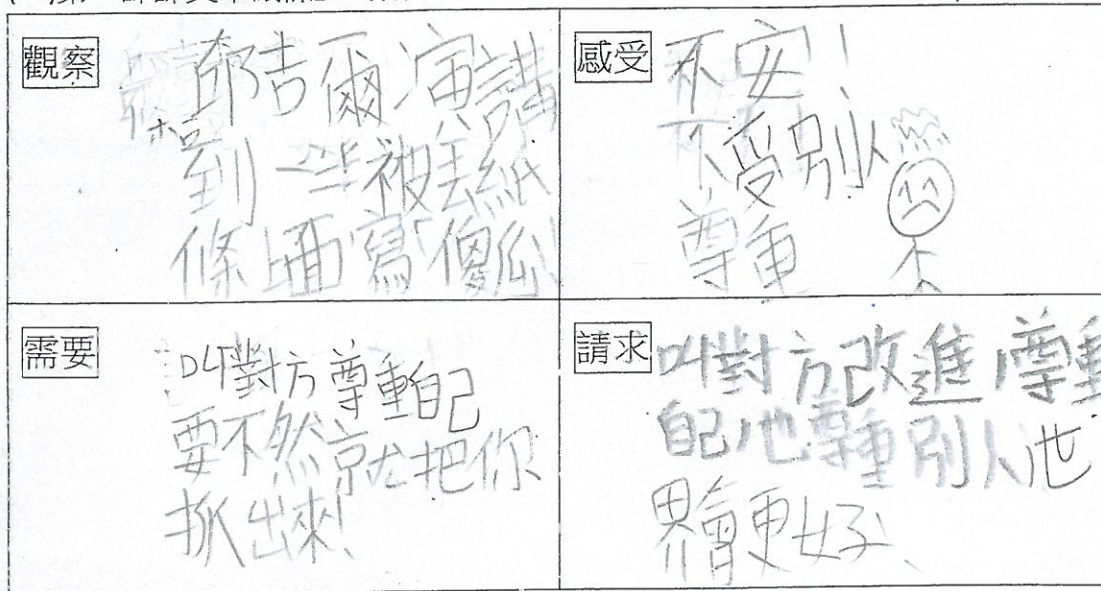 觀察
邱吉爾演講
到一半被丟紙
條上面寫「傻瓜」
感受
不安!
不受別人
尊重
需要
叫對方尊重自己
要不然就把你
抓出來!
請求
叫對方改進,尊重
自己也尊重別人也
界會更好、